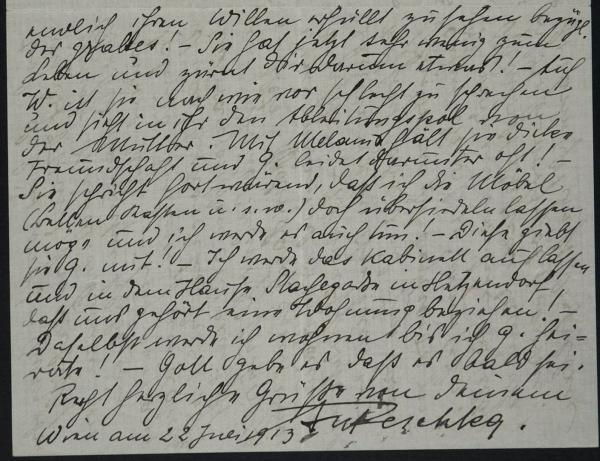 endlich ihren Willen erfüllt zu sehen bezügl.
der Gehaltes! – Sie hat jetzt sehr wenig zum
Leben und zürnt dir darum etwas! – Auf
W. ist sie nach wie vor schlecht zu sprechen
und sieht in ihr den Ableitungspol von
der Mutter. Mit Melanie hält sie dicke
Freundschaft und G. leidet darunter oft! –
Sie schreibt fortwärend, daß ich die Möbel
(Betten Kasten u. s. w.) doch übersiedeln lassen
möge und ich werde es auch tun! – Diese giebt
sie G. mit! – Ich werde das Kabinett auflassen
und in dem Hause in Hetzendorf,
daß uns gehört eine Wohnung beziehen! –
Daselbst werde ich wohnen bis ich G. hei-
rate! – Gott gebe es daß es bald sei.
Recht herzliche Grüße von deinem
Wien am 22 Juli 1913 Peschka.